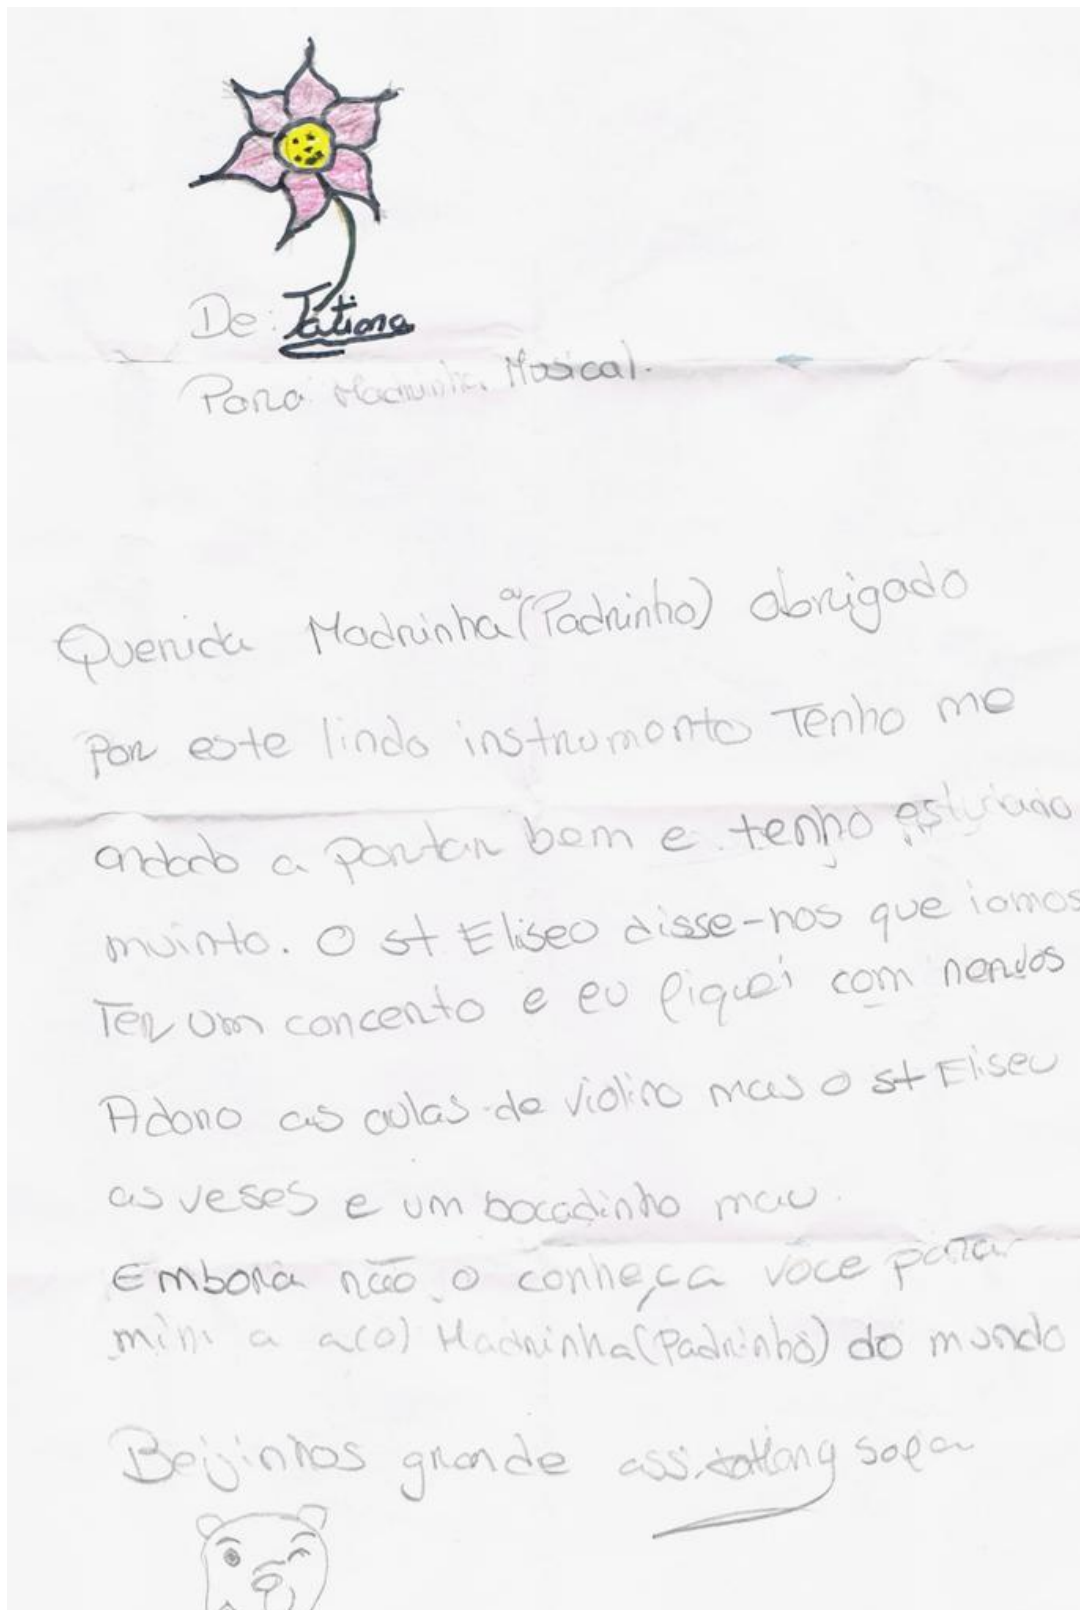 De: Tatiana
Para: Madrinha Musical.
Querida Madrinha (Padrinho) obrigado
por este lindo instrumento Tenho me
andado a portar bem e tenho estudado
muinto. O st Eliseo disse-nos que iamos
Ter um concerto e eu fiquei com nervos
Adoro as aulas de violino mas o st Eliseu
as veses e um bocadinho mau.
Embora não o conheça voce para
mim a a(o) Madrinha(Padrinho) do mundo
Beijinhos grande ass: